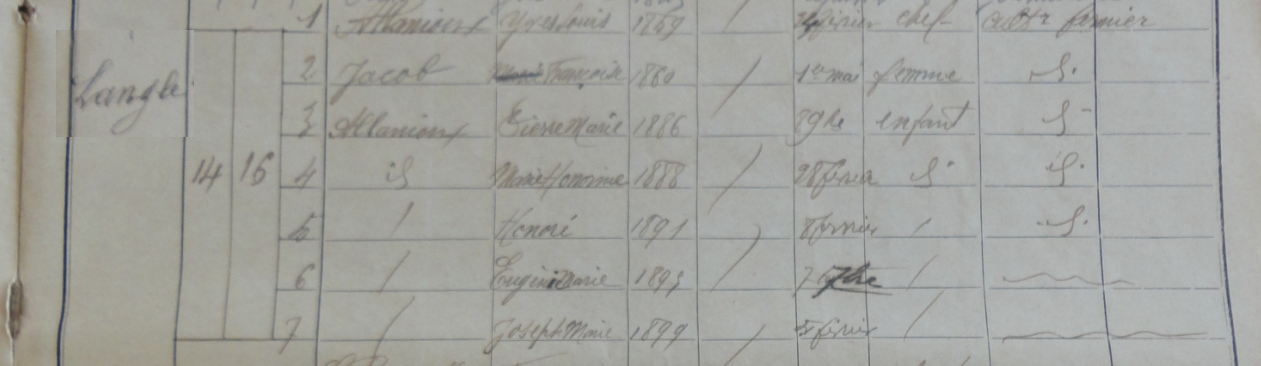 1 Allanioux Yves Louis 1859 / février chef cultr fermier
2 Jacob Françoise 1860 / 1er mai femme id.
Langle
3 Allanioux Pierre Marie 1886 9bre enfant id
14 16 4 id Marie Honorine 1888 / 28 février id id.
5 / Honoré 1891 / 8 février / id.
6 / Eugénie Marie 1895 / 7bre /
7 / Joseph Marie 1899 / 5 février /